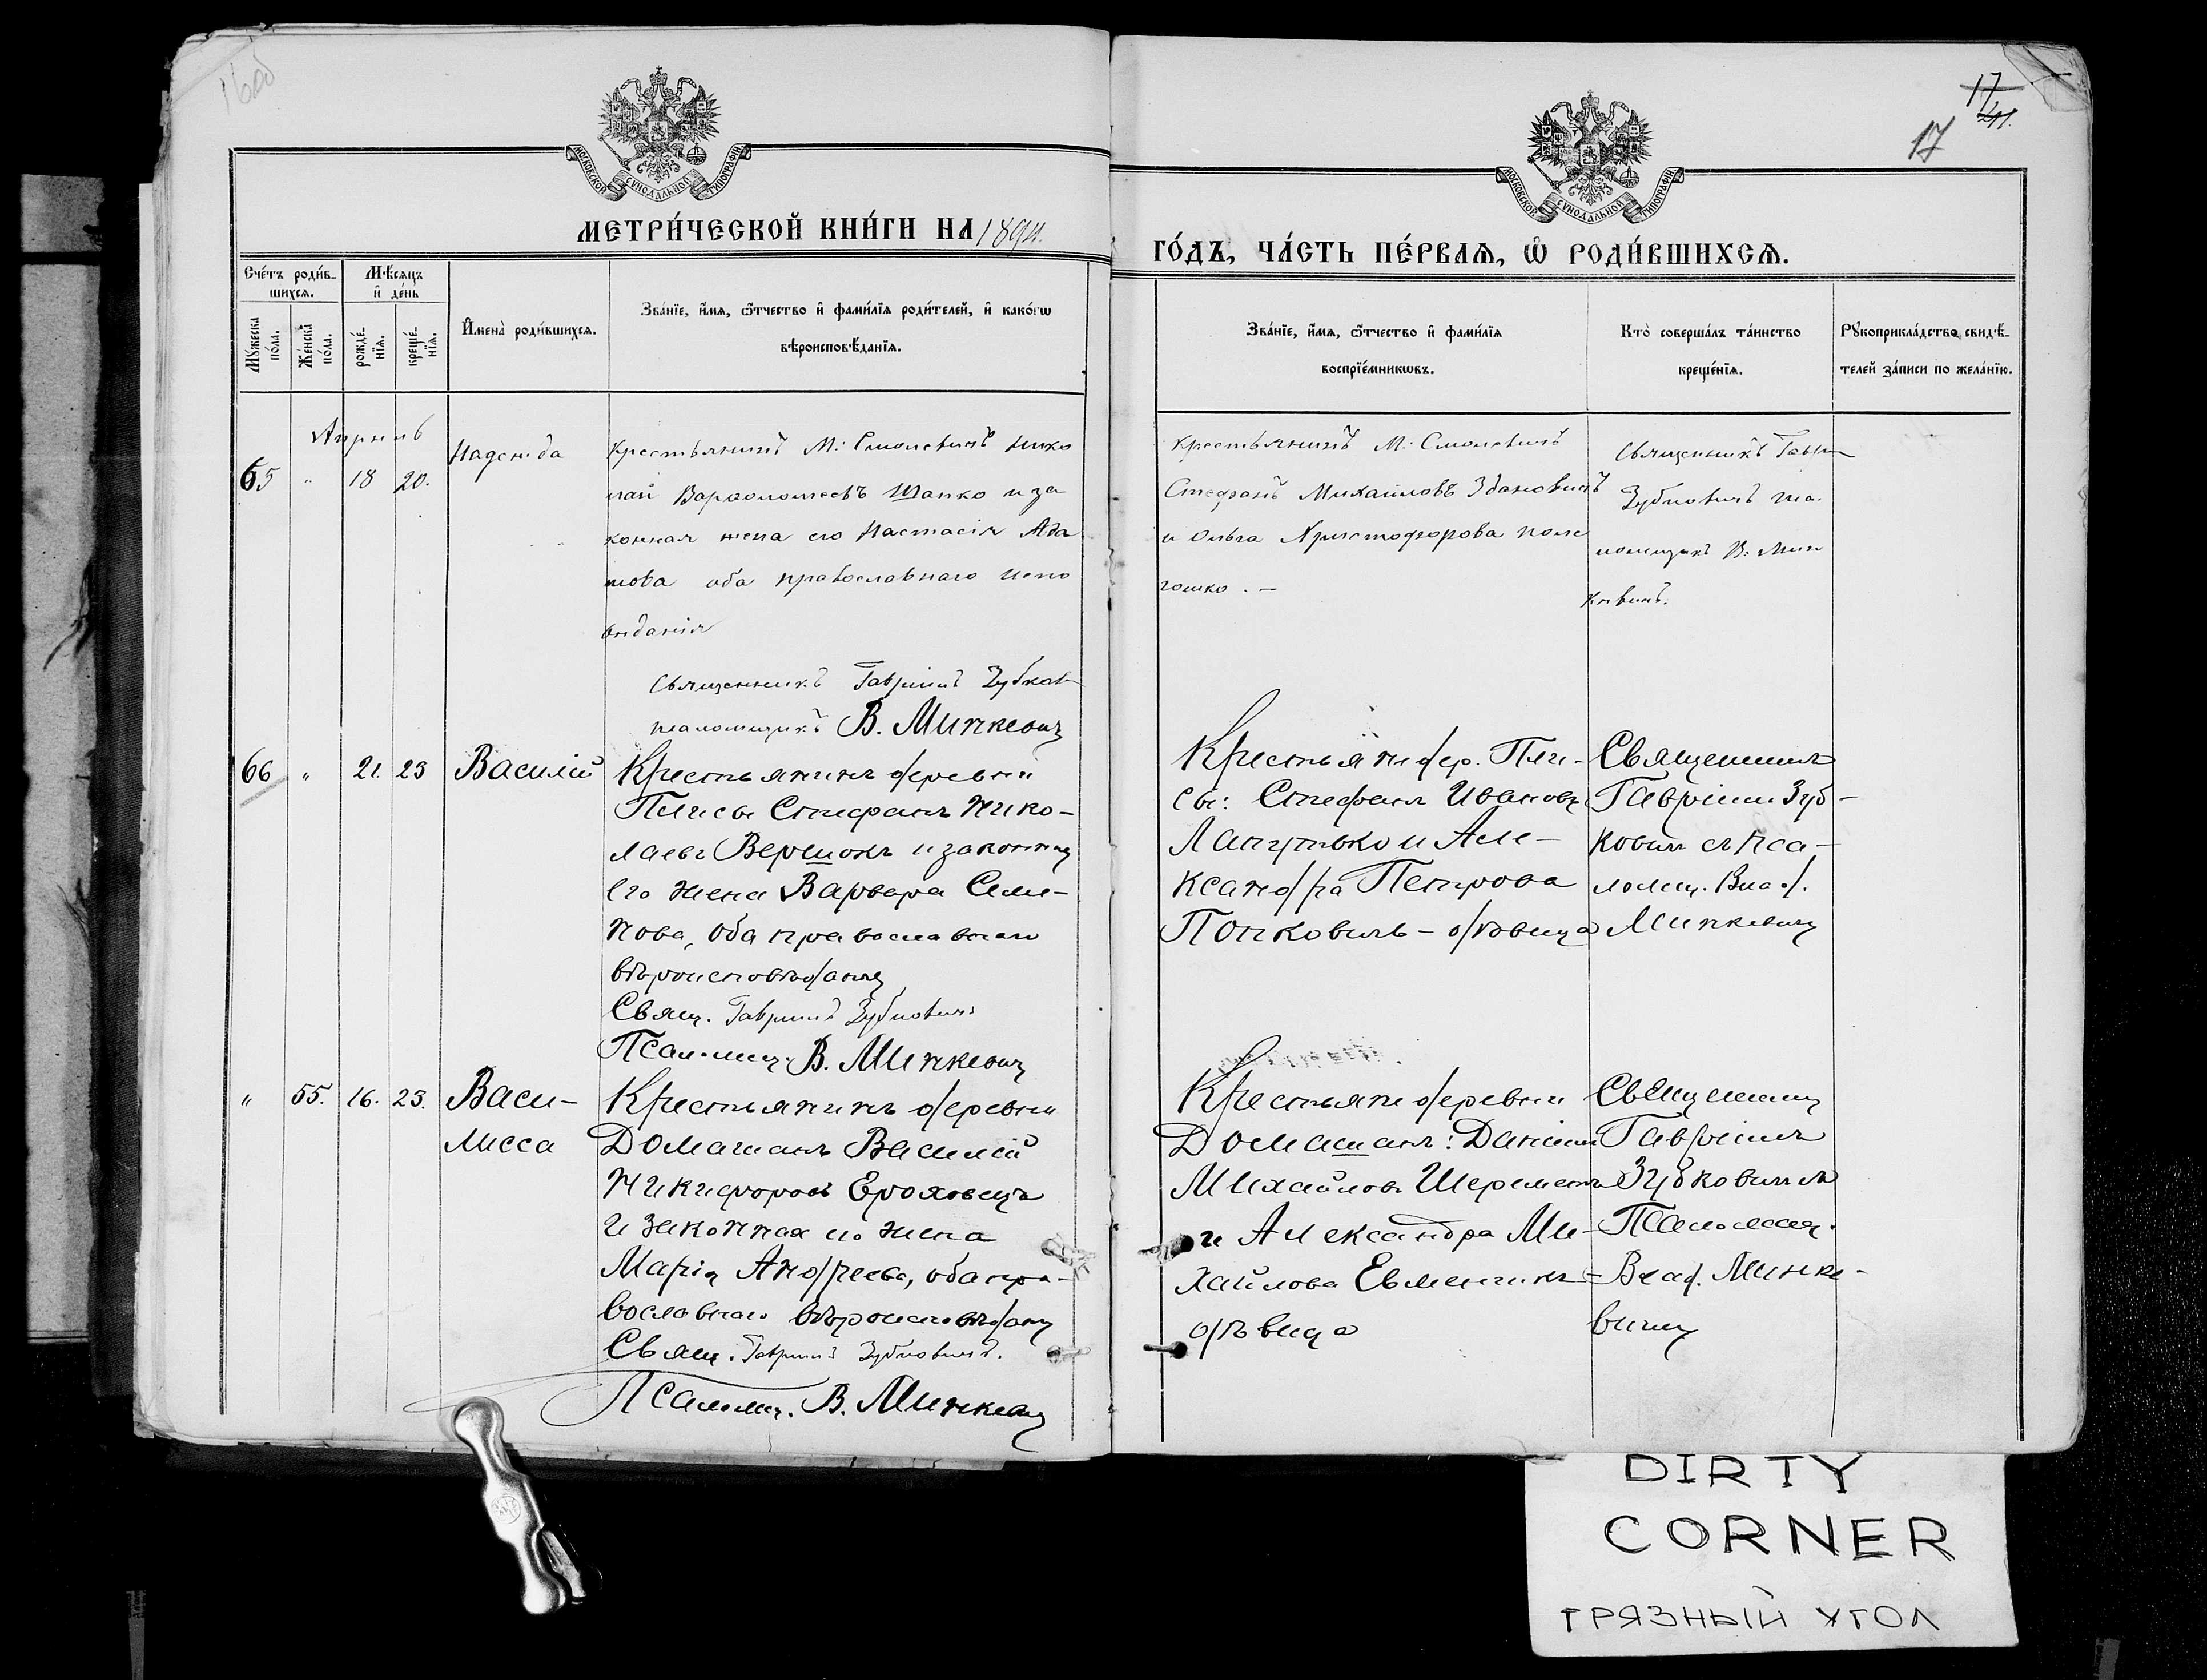 16об
17
211.
17
МОСКОВСКОЙ СѴНОДАЛЬНОЙ ТИПОГРАФІИ
МОСКОВСКОЙ СѴНОДАЛЬНОЙ ТИПОГРАФІИ
МЕТРИ́ЧЕСКОЙ КНИ́ГИ НА 1894.
ГО́ДЪ, ЧА́СТЬ ПЕ́РВАѦ, Ѡ҆ РОДИ́ВШИХСѦ.
Сче́тъ роди́в-
шихсѧ.
Мѣ́сѧцъ
и҆ де́нь
Мꙋ́жеска
по́ла.
Же́нска
по́ла.
рожде́-
нїѧ.
креще́-
нїѧ.
И҆мена̀ роди́вшихсѧ.
Зва́нїе, и҆́мѧ, ѻ҆́тчество и҆ фами́лїѧ роди́телей, и҆ како́гѡ
вѣроисповѣ́данїѧ.
Зва́нїе, и҆́мѧ, ѻ҆́тчество и҆ фами́лїѧ
воспрїе́мникѡвъ.
Кто̀ соверша́лъ та́инство
креще́нїѧ.
Рꙋкоприкла́дство свидѣ́-
телей за́писи по жела́нїю.
Апрѣль
65 " 18 20.
Надежда
Крестьянинъ М: Смолевичъ Нико
лай Варѳоломеевъ Шапко и за
конная жена его Настасія Ада
мова оба православнаго испо
вѣданія
Священникъ Гавріилъ Зубков
псаломщикъ В. Минкевич
Крестьянинъ М: Смолевичъ
Стефанъ Михайловъ Здановичъ
и Ольга Христофорова
Священникъ Гаврі
Зубковичъ пса
ломщикъ В: Мин
кевичъ.
66 " 21. 23 Василій
Крестьянинъ деревни
Плисы Стефанъ Нико-
лаевъ Вершокъ и законная
его жена Варвара Семе-
нова, оба православнаго
вѣроисповѣданія
Свящ. Гавріилъ Зубковичъ
Псаломщ. В. Минкевич
Крестьяне дер. Пли-
сы: Стефанъ Ивановъ
Лапутько и Але-
ксандра Петрова
Попковичъ - дѣвица
Священникъ
Гавріилъ Зуб-
ковичъ съ пса-
ломщ. Влад.
Минкевич
" 55. 16. 23. Васи-
лисса
Крестьянинъ деревни
Домашанъ Василій
Никифоровъ Ероховецъ
и законная его жена
Марія Андреева, оба пра-
вославнаго вѣроисповѣдан
Свящ. Гавріилъ Зубковичъ.
Псаломщ. В. Минкевич
Крестьяне деревни
Домашанъ: Даніилъ
Михайловъ Шереметъ
и Александра Ми-
хайлова
дѣвица
Священникъ
Гавріилъ
Зубковичъ съ
Псаломщ.
Влад. Минке-
вичъ
DIRTY
CORNER
ГРЯЗНЫЙ УГОЛ